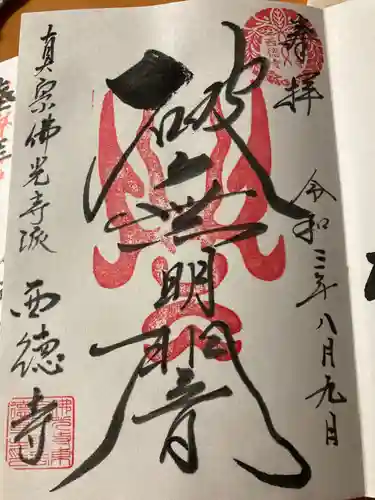 奉拝
令和三年八月九日
破無明闇
真宗佛光寺派
西徳寺